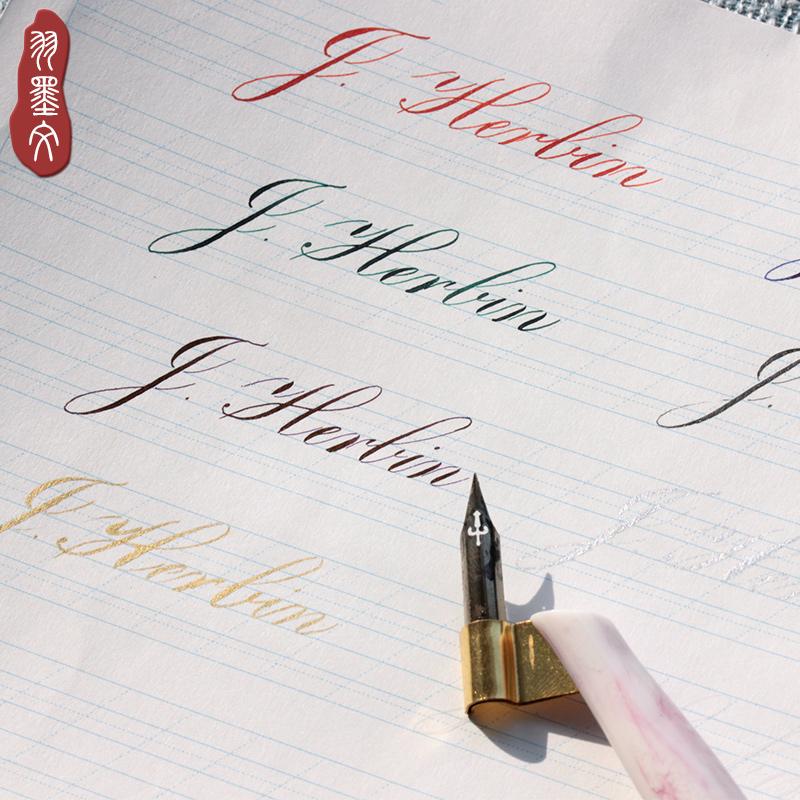 羽墨文
J. Herbin
J. Herbin
J. Herbin
J.
J. Herbin